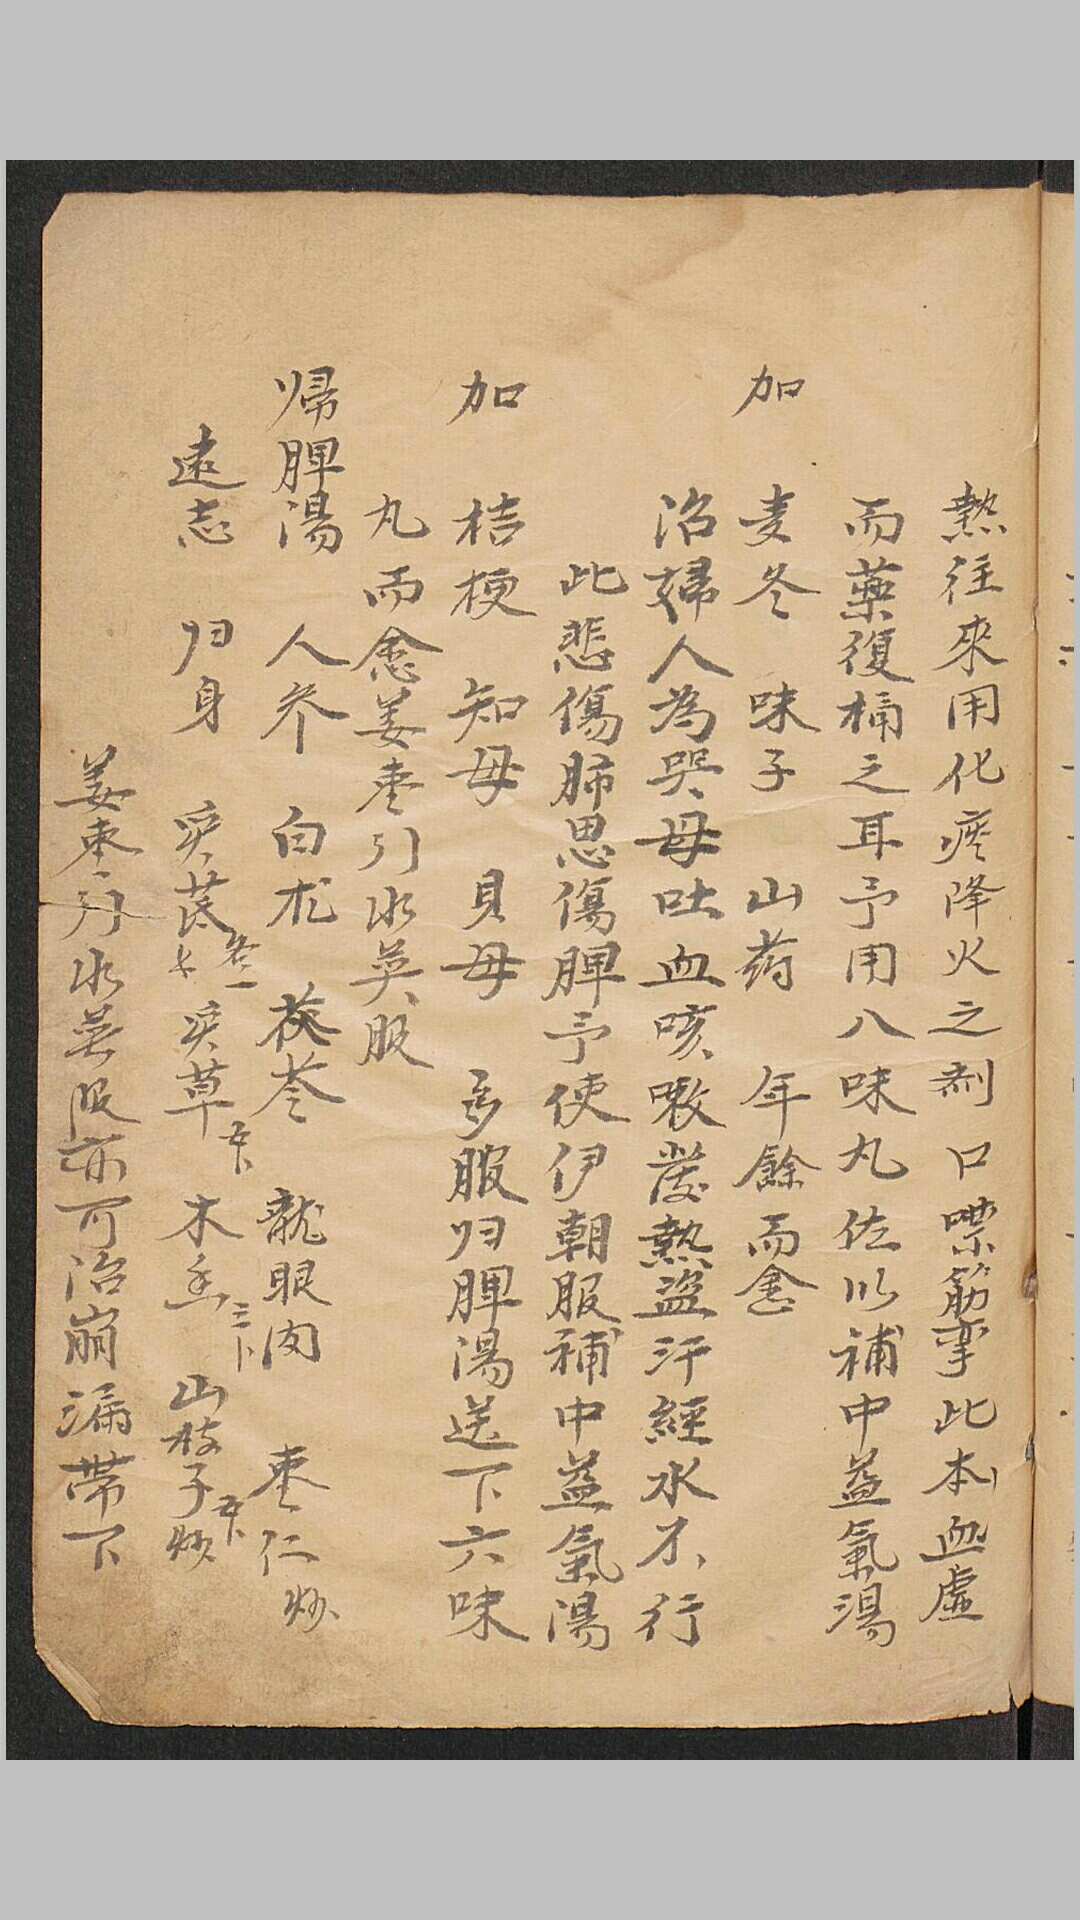 熱往來用化痰降火之剤口噤筋攣此本血虛
而藥復損之耳予用八味丸佐以補中益氣湯
加 麦冬 味子 山药 年餘而愈
治婦人為哭母吐血咳嗽發熱盜汗經水不行
此悲傷肺思傷脾予使伊朝服補中益氣湯
加 桔梗 知母 貝母 夕服归脾湯送下六味
丸而愈姜枣引水煎服
帰脾湯 人参 白朮 茯苓 龍眼肉 枣仁炒
遠志 归身 炙芪 炙草 木香 三卜 山枝子炒
姜枣引水煎服亦可治崩漏帶下